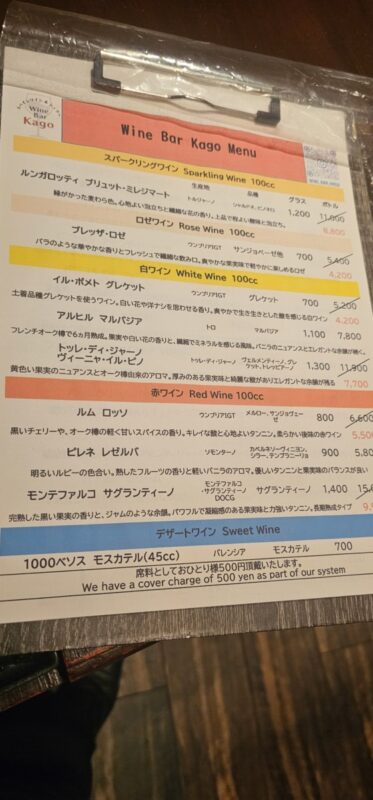 Wine Bar
Kago
Wine Bar Kago Menu
スパークリングワイン Sparkling Wine 100cc
生産地 品種 グラス ボトル
ルンガロッティ ブリュット・ミレジマート トルジャーノ シャルドネ、ピノネロ 1,200 11,000
緑がかった麦わら色。心地よい泡立ちと繊細な花の香り。上品で程よい酸味と泡立ち。 8,800
ロゼワイン Rose Wine 100cc
ブレッザ・ロゼ ウンブリアIGT サンジョベーゼ他 700 5,400
バラのような華やかな香りとフレッシュで繊細な飲み口。爽やかな果実味で軽やかに楽しめるロゼ 4,200
白ワイン White Wine 100cc
イル・ポメト グレケット ウンブリアIGT グレケット 700 5,200
土着品種グレケットを使うワイン。白い花や洋ナシを思わせる香り。爽やかで生き生きとした酸を感じる白ワイン 4,200
アルヒル マルバジア トロ マルバジア 1,100 7,800
フレンチオーク樽で6カ月熟成。果実や白い花の香りと、繊細でミネラルを感じる風味。バニラのニュアンスとエレガントな余韻が続く。
トッレ・ディ・ジャーノ
ヴィーニャ・イル・ピノ トッレ・ディ・ジャーノ ヴェルメンティーノ、グレケット、トレッビアーノ 1,300 11,900
黄色い果実のニュアンスとオーク樽由来のアロマ。厚みのある果実味と綺麗な酸がありエレガントな余韻が残る 7,700
赤ワイン Red Wine 100cc
ルム ロッソ ウンブリアIGT メルロー、サンジョヴェーゼ 800 6,600
黒いチェリーや、オーク樽の軽く甘いスパイスの香り。キレイな酸と心地よいタンニン。柔らかい後味の赤ワイン 5,500
ピレネ レゼルバ ソモンターノ カベルネソーヴィニヨン、シラー、テンプラニーリョ 900 5,80
明るいルビーの色合い。熟したフルーツの香りと軽いバニラのアロマ。優しいタンニンと果実味のバランスが良い
モンテファルコ サグランティーノ モンテファルコ・サグランティーノDOCG サグランティーノ 1,400 15,
完熟した黒い果実の香りと、ジャムのような余韻。パワフルで凝縮感のある果実味と力強いタンニン。長期熟成タイプ 9,
デザートワイン Sweet Wine
1000ペソス モスカテル(45cc) バレンシア モスカテル 700
席料としておひとり様500円頂戴いたします。
We have a cover charge of 500 yen as part of our system